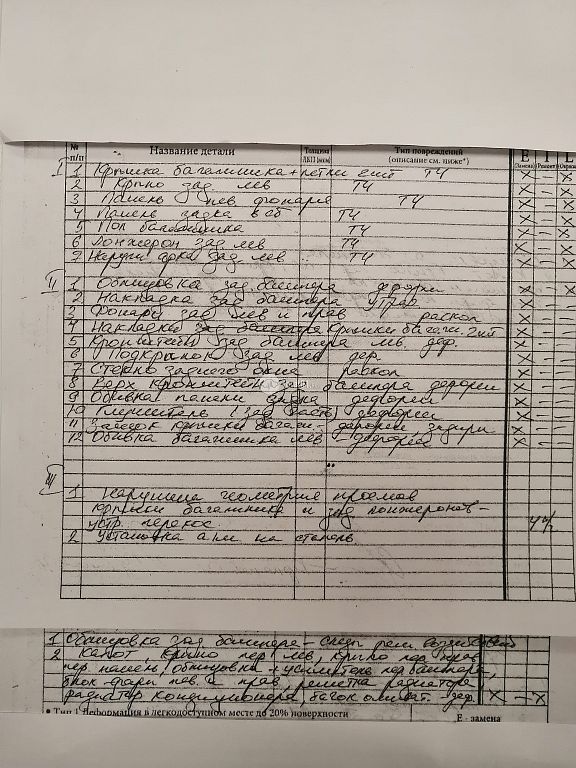 № п/п Название детали Толщина ЛКП (мкм) Тип повреждений (описание см. ниже*) E (Замена) I (Ремонт) L
I 1 Крышка багажника + петли 2шт Т4 X — X
2 Крыло зад лев Т4 X — X
3 Панель лев фонаря Т4 X — X
4 Панель задка в сб Т4 X — X
5 Пол багажника Т4 X — X
6 Лонжерон зад лев Т4 X — X
7 Наружн арка зад лев Т4 X — X
II 1 Облицовка зад бампера деформ X — X
2 Накладка зад бампера X — —
3 Фонари зад лев и прав раскол X — —
4 Накладки зад бампера Крышки багажн. 2шт X — —
5 Кронштейн зад бампера лев деф. X — —
6 Подкрылок зад лев деф X — —
7 Стекло заднего окна раскол X — —
8 Верх кронштейн зад бампера деформ X — —
9 Обивка панели задка деформ X — —
10 Глушитель (зад часть) деформ X — —
11 Замок крышки багажн - деформ задиры X — —
12 Обивка багажника лев - деформ X — —
III
1 Нарушена геометрия проемов
крышки багажника и зад лонжеронов -
устр. перекос.
2 Установка а/м на стапель
1 Облицовка зад бампера - следы рем.
2 Капот Крыло пер лев, крыло пер прав
пер панель, облицовка + усилитель пер бампера,
блок фары лев и прав, решетка радиатора
радиатор кондиционера, бачок омыват. деф. X — X
* Тип 1 Деформация в легкодоступном месте до 20% поверхности E - замена